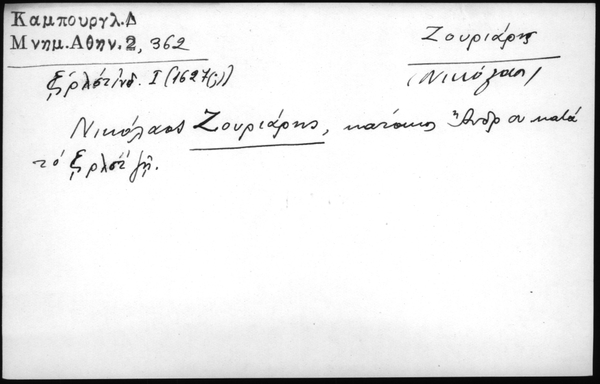 Καμπουργλ.Δ
Μνημ.Αθην.2, 362
Ζουριάρης
(Νικόλαος)
ζρλε ἰνδ. Ι (1627(;))
Νικόλαος Ζουριάρης, κάτοικος Ἄνδρου κατά
τό ζρλε